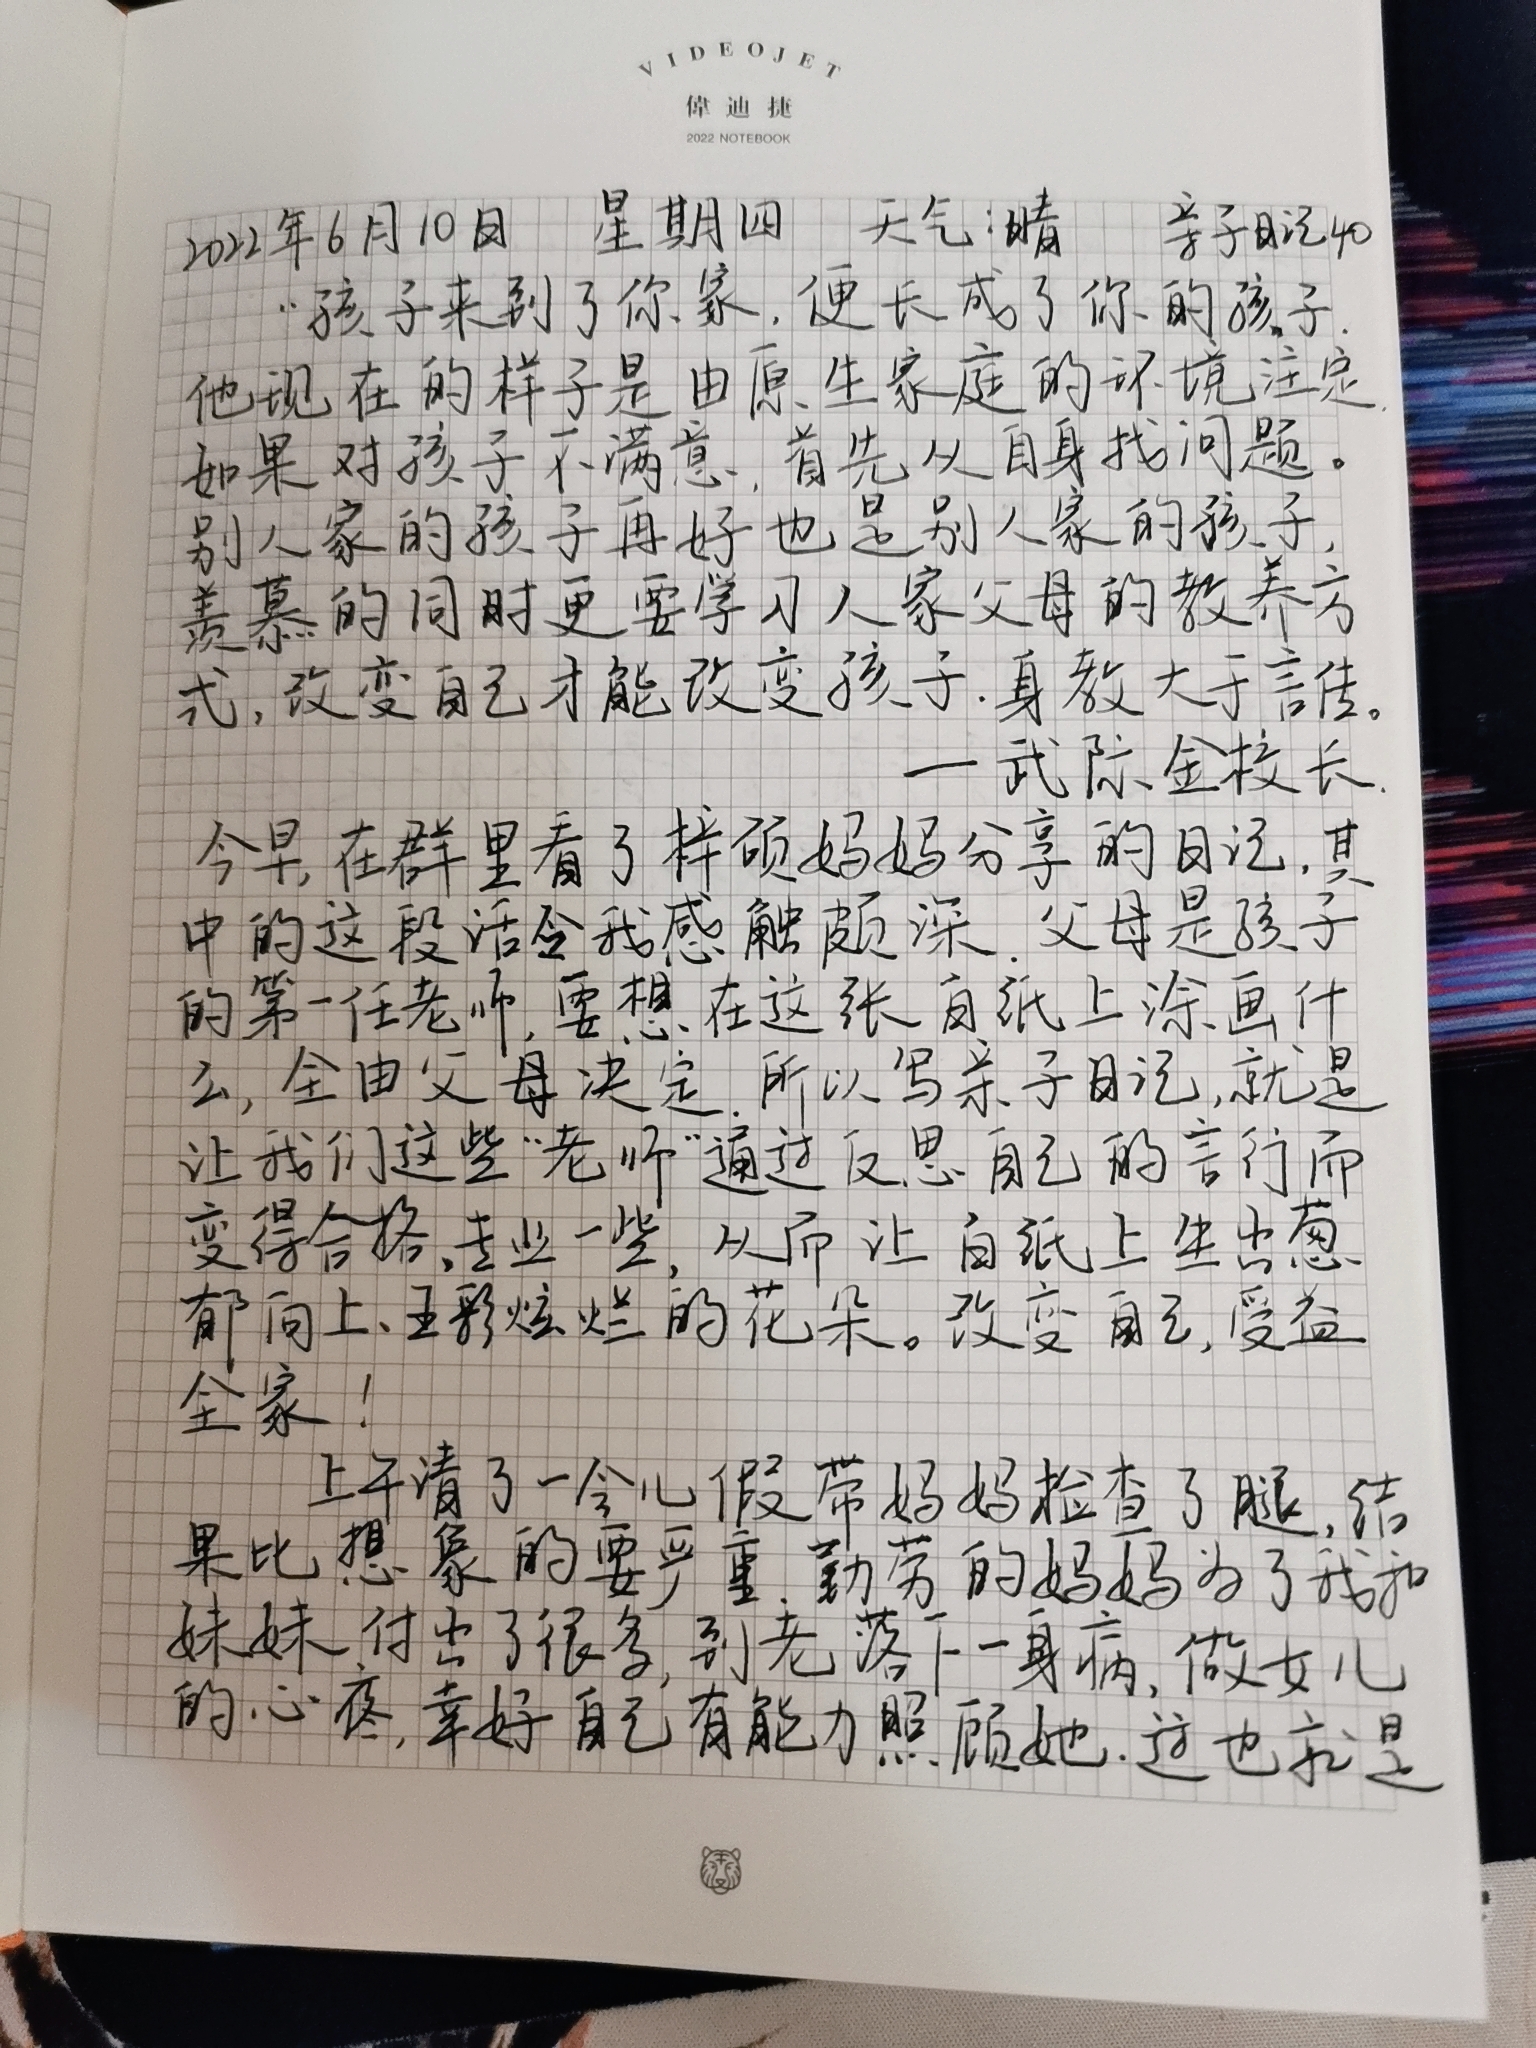 VIDEOJET
偉迪捷
2022 NOTEBOOK
2022年6月10日 星期四 天气:晴 亲子日记40
“孩子来到了你家,便长成了你的孩子.
他现在的样子是由原生家庭的环境注定.
如果对孩子不满意,首先从自身找问题。
别人家的孩子再好也是别人家的孩子,
羡慕的同时更要学习人家父母的教养方
式,改变自己才能改变孩子.身教大于言传。
一武际金校长.
今早,在群里看了梓硕妈妈分享的日记,其
中的这段话令我感触颇深.父母是孩子
的第一任老师,要想在这张白纸上涂画什
么,全由父母决定.所以写亲子日记,就是
让我们这些“老师”通过反思自己的言行而
变得合格、专业一些,从而让白纸上生出葱
郁向上、五彩炫烂的花朵。改变自己,受益
全家!
上午请了一会儿假带妈妈检查了腿,结
果比想象的要严重.勤劳的妈妈为了我和
妹妹付出了很多,到老落下一身病,做女儿
的心疼,幸好自己有能力照顾她.这也就是